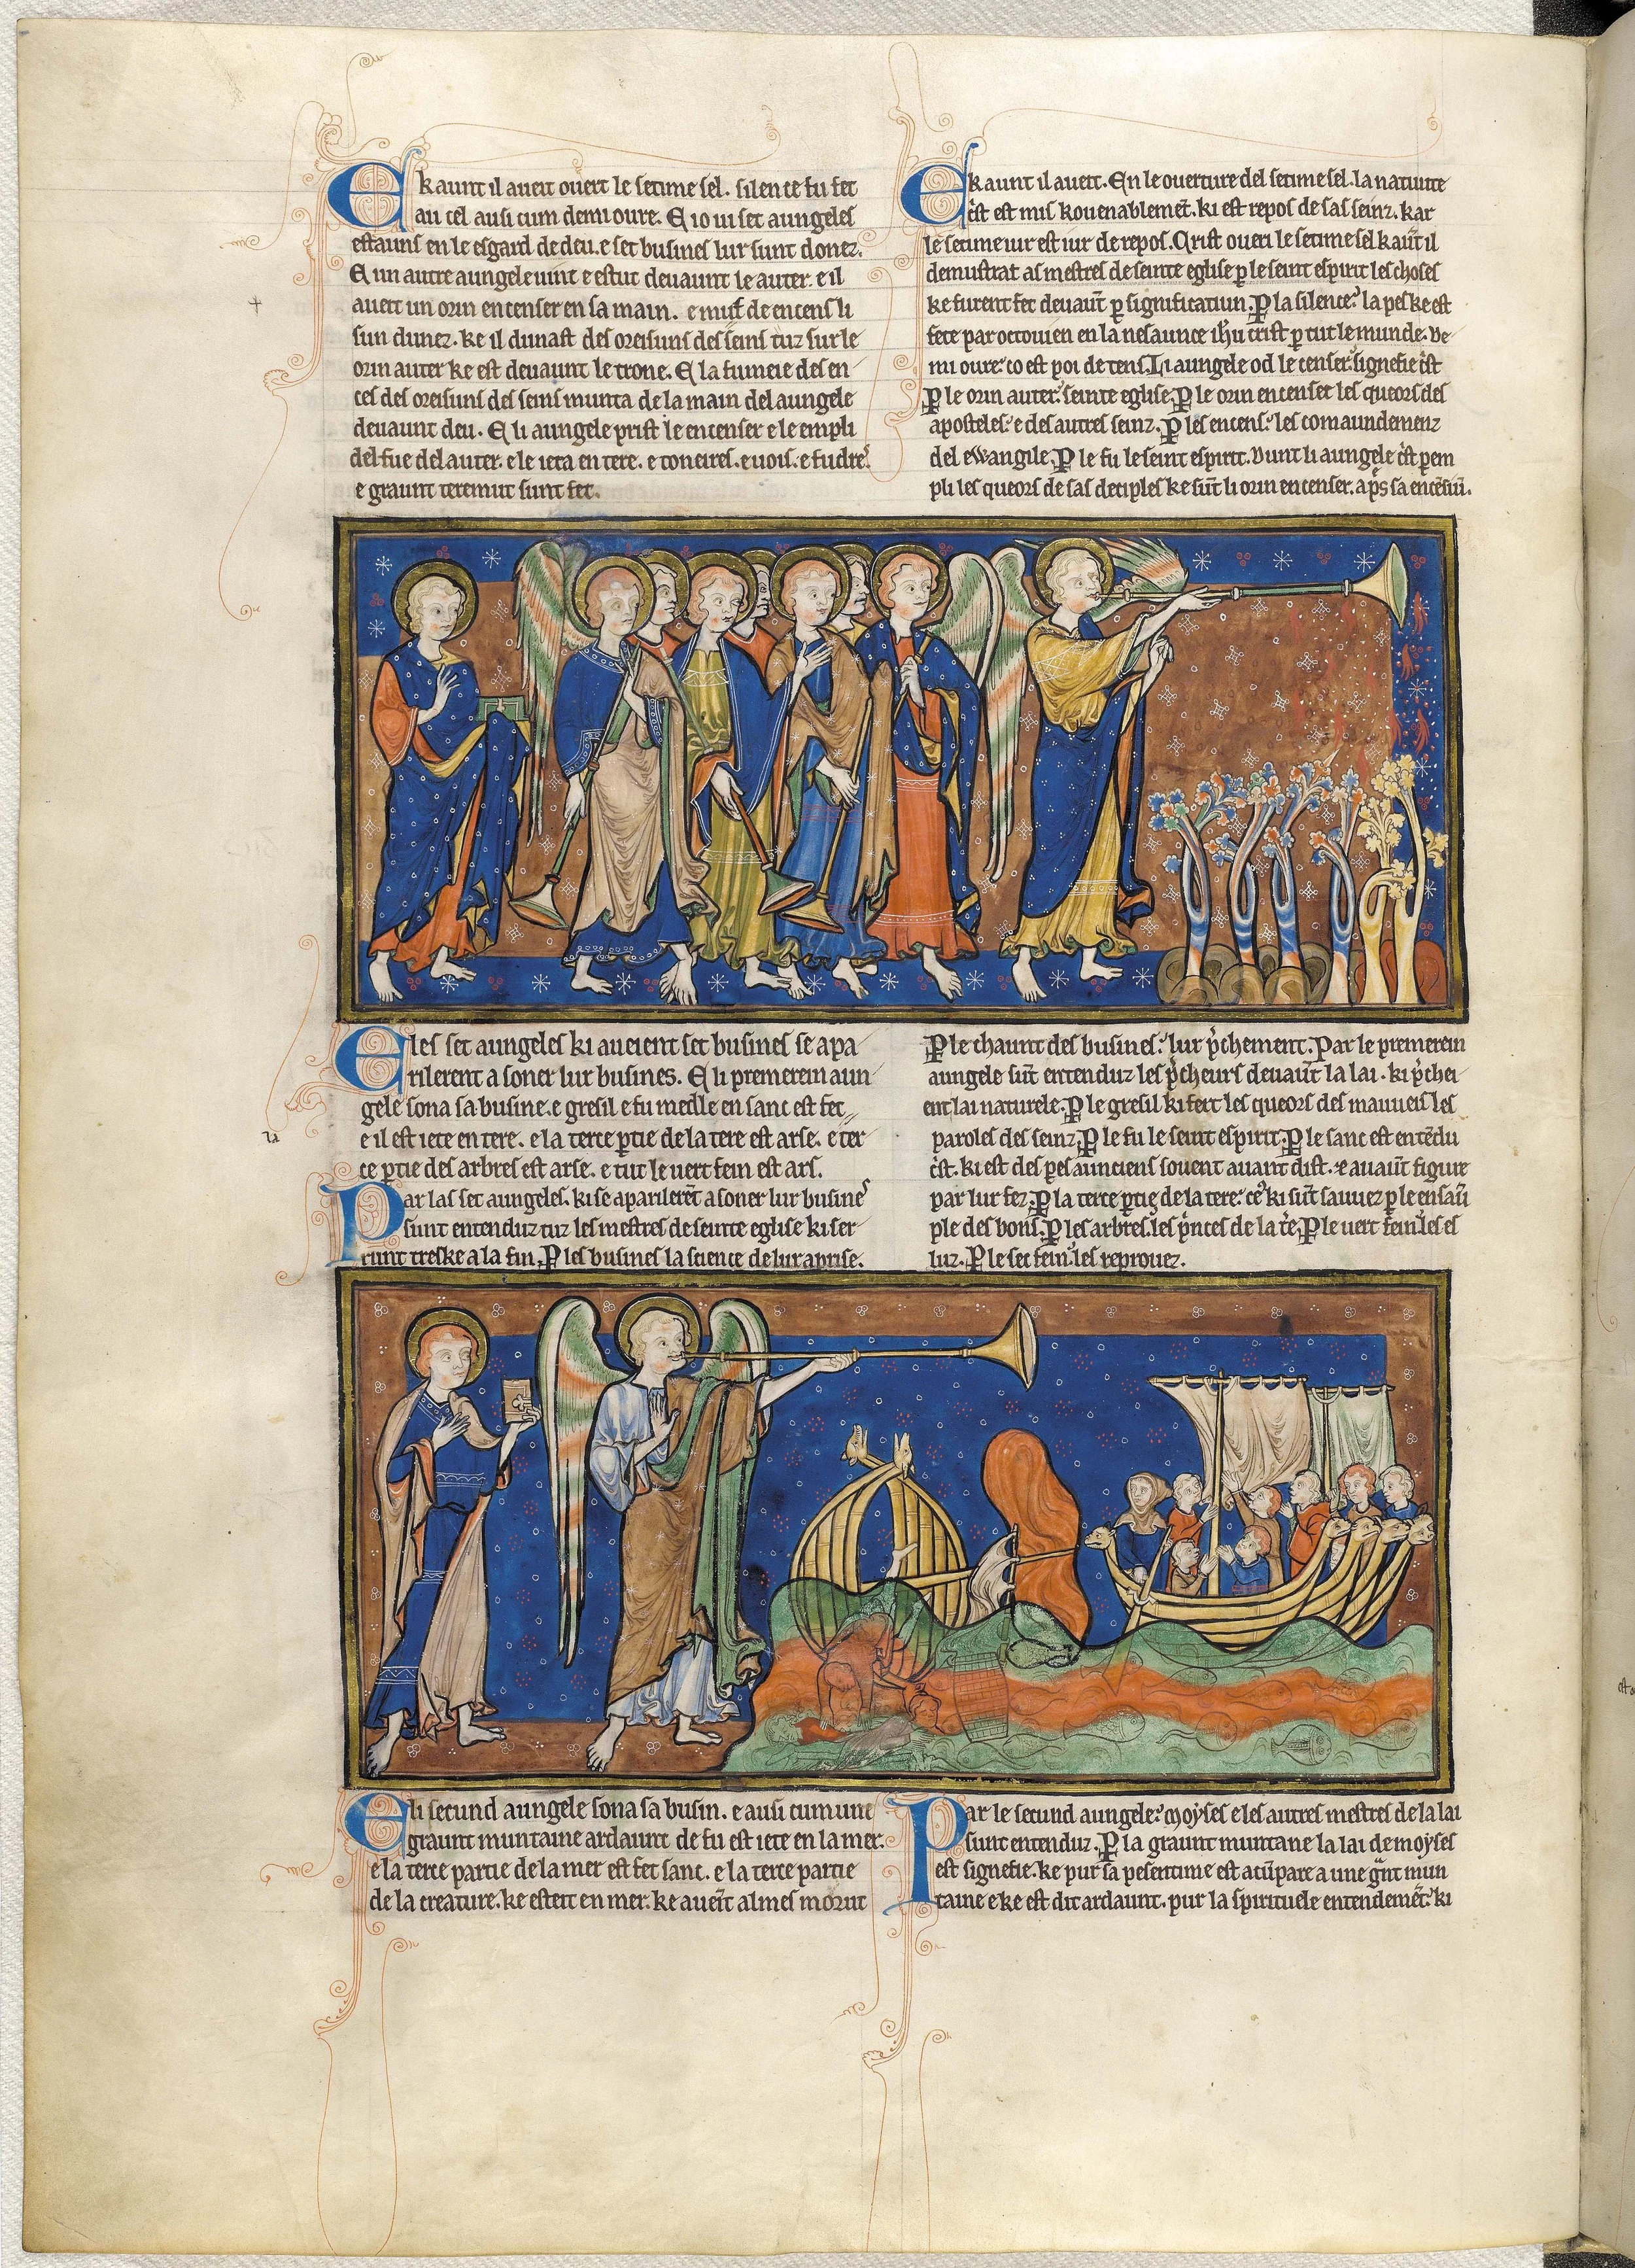 E kaunt il aueit ouert le setime sel. silence fu fet
au cel ausi cum demi oure. E io ui set aungeles
estauns en le esgard de deu. e set busines lur sunt donez.
E un autre aungele uint e estut deuaunt le auter. e il
aueit un orin encenser en sa main. e mut de encens li
sun dunez. ke il dunast des oreisuns des seins tuz sur le
orin auter ke est deuaunt le trone. E la fumeie des en
ces des oreisuns des seins munta de la main del aungele
deuaunt deu. E li aungele prist le encenser e le empli
del fue del auter. e le ieta en tere. e toneires. e uois. e fudre
e graunt teremut sunt fet.
E kaunt il auert. En le ouerture del setime sel. la natiuite
c̄st est mis kouenablemēt. ki est repos de sas seinz. kar
le setime iur est iur de repos. Crist oueri le setime sel kaūt il
demustrat as mestres de seinte eglise ꝑ le seint espirit les choses
ke furent fet deuaūt ꝑ significatiun. P la silence. la pes ke est
fete par octouien en la nesaunce ihu crist ꝑ tut le munde. De
mi oure. co est poi de tens. Li aungele od le censer signefie c̄st
P le orin auter. seinte eglise. P le orin encenser les queors des
aposteles. e des autres seinz. P les encens. les comaundemenz
del ewangile. P le fu le seint espirit. Dunt li aungele c̄st ꝑem
pli les queors de sas deciples ke sūt li orin encenser. ap̄s sa encēsiū.
E les set aungeles ki aueient set busines se apa
rilerent a soner lur busines. E li premerein aun
gele sona sa busine. e gresil e fu medle en sanc est fet
e il est iete en tere. e la terce ꝑtie de la tere est arse. e ter
ce ꝑtie des arbres est arse. e tut le uert fein est ars.
Par las set aungeles. ki se aparilerēt a soner lur busines
sunt entenduz tuz les mestres de seinte eglise ki ser
runt treske a la fin. P les busines la science de lur aprise.
P le chaunt des busines. lur p̄chement. Par le premerein
aungele sūt entenduz les p̄cheurs deuaūt la lai. ki p̄chei
ent lai naturele. P le gresil ki fert les queors des mauueis les
paroles des seinz. P le fu le seint espirit. P le sanc est entēdu
c̄st. ki est des pes aunciens souent auant dist. e auaūt figure
par lur fez. P la terce ꝑtie de la tere. ce ki sūt sauuez ꝑ le ensaū
ple des bons. P les arbres. les p̄nces de la t̄e. P le uert fein. les es
luz. P le sec fein. les reprouez.
E li secund aungele sona sa busin. e ausi cum une
graunt muntaine ardaunt de fu est iete en la mer.
e la terce partie de la mer est fet sanc. e la terce partie
de la creature. ke esteit en mer. ke aueit almes morut
Par le secund aungele. moyses e les autres mestres de la lai
sunt entenduz. P la graunt muntane la lai de moyses
est signefie. ke pur sa pesentime est acūpare a une gnt mun
taine e ke est dit ardaunt. pur la spirituele entendemēt. ki